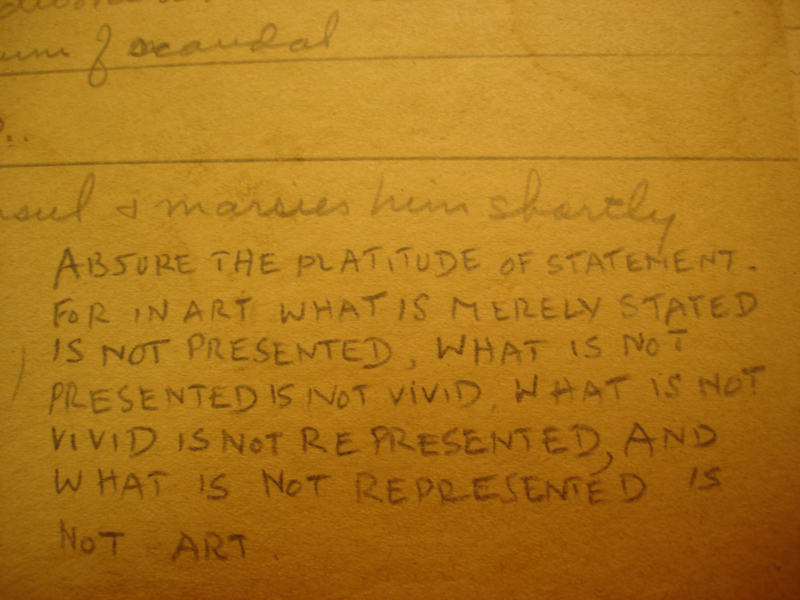 of scandal
& marries him shortly
ABJURE THE PLATITUDE OF STATEMENT.
FOR IN ART WHAT IS MERELY STATED
IS NOT PRESENTED, WHAT IS NOT
PRESENTED IS NOT VIVID, WHAT IS NOT
VIVID IS NOT REPRESENTED, AND
WHAT IS NOT REPRESENTED IS
NOT ART.